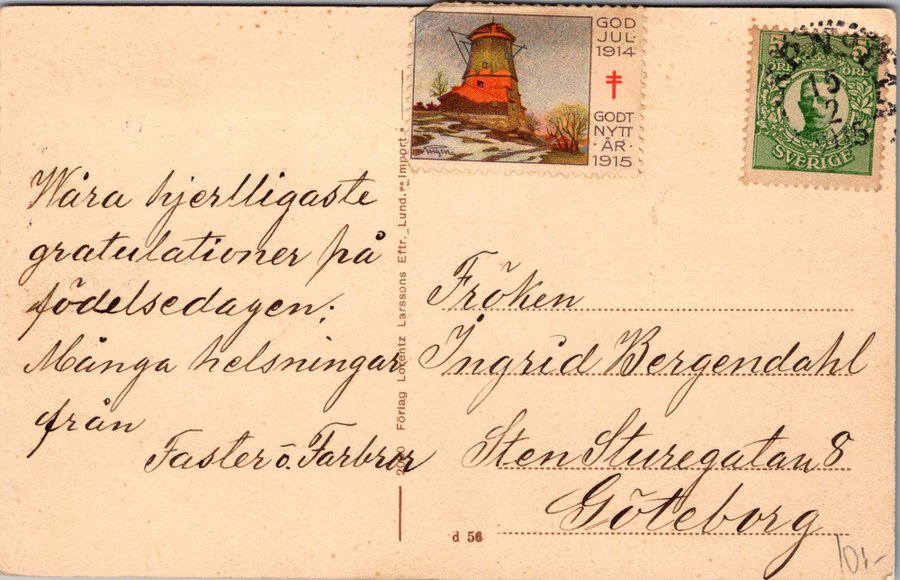 GOD
JUL
1914
GODT
NYTT
· ÅR ·
1915
ÖRE
ÖRE
SVERIGE
15
2
15
Wåra hjertligaste
gratulationer på
födelsedagen;
Många helsningar
från
Faster o. Farbror
Förlag Lorentz Larssons Eftr., Lund. - Import.
Fröken
Ingrid Bergendahl
Sten Sturegatan 8
Göteborg
d 56
10:-